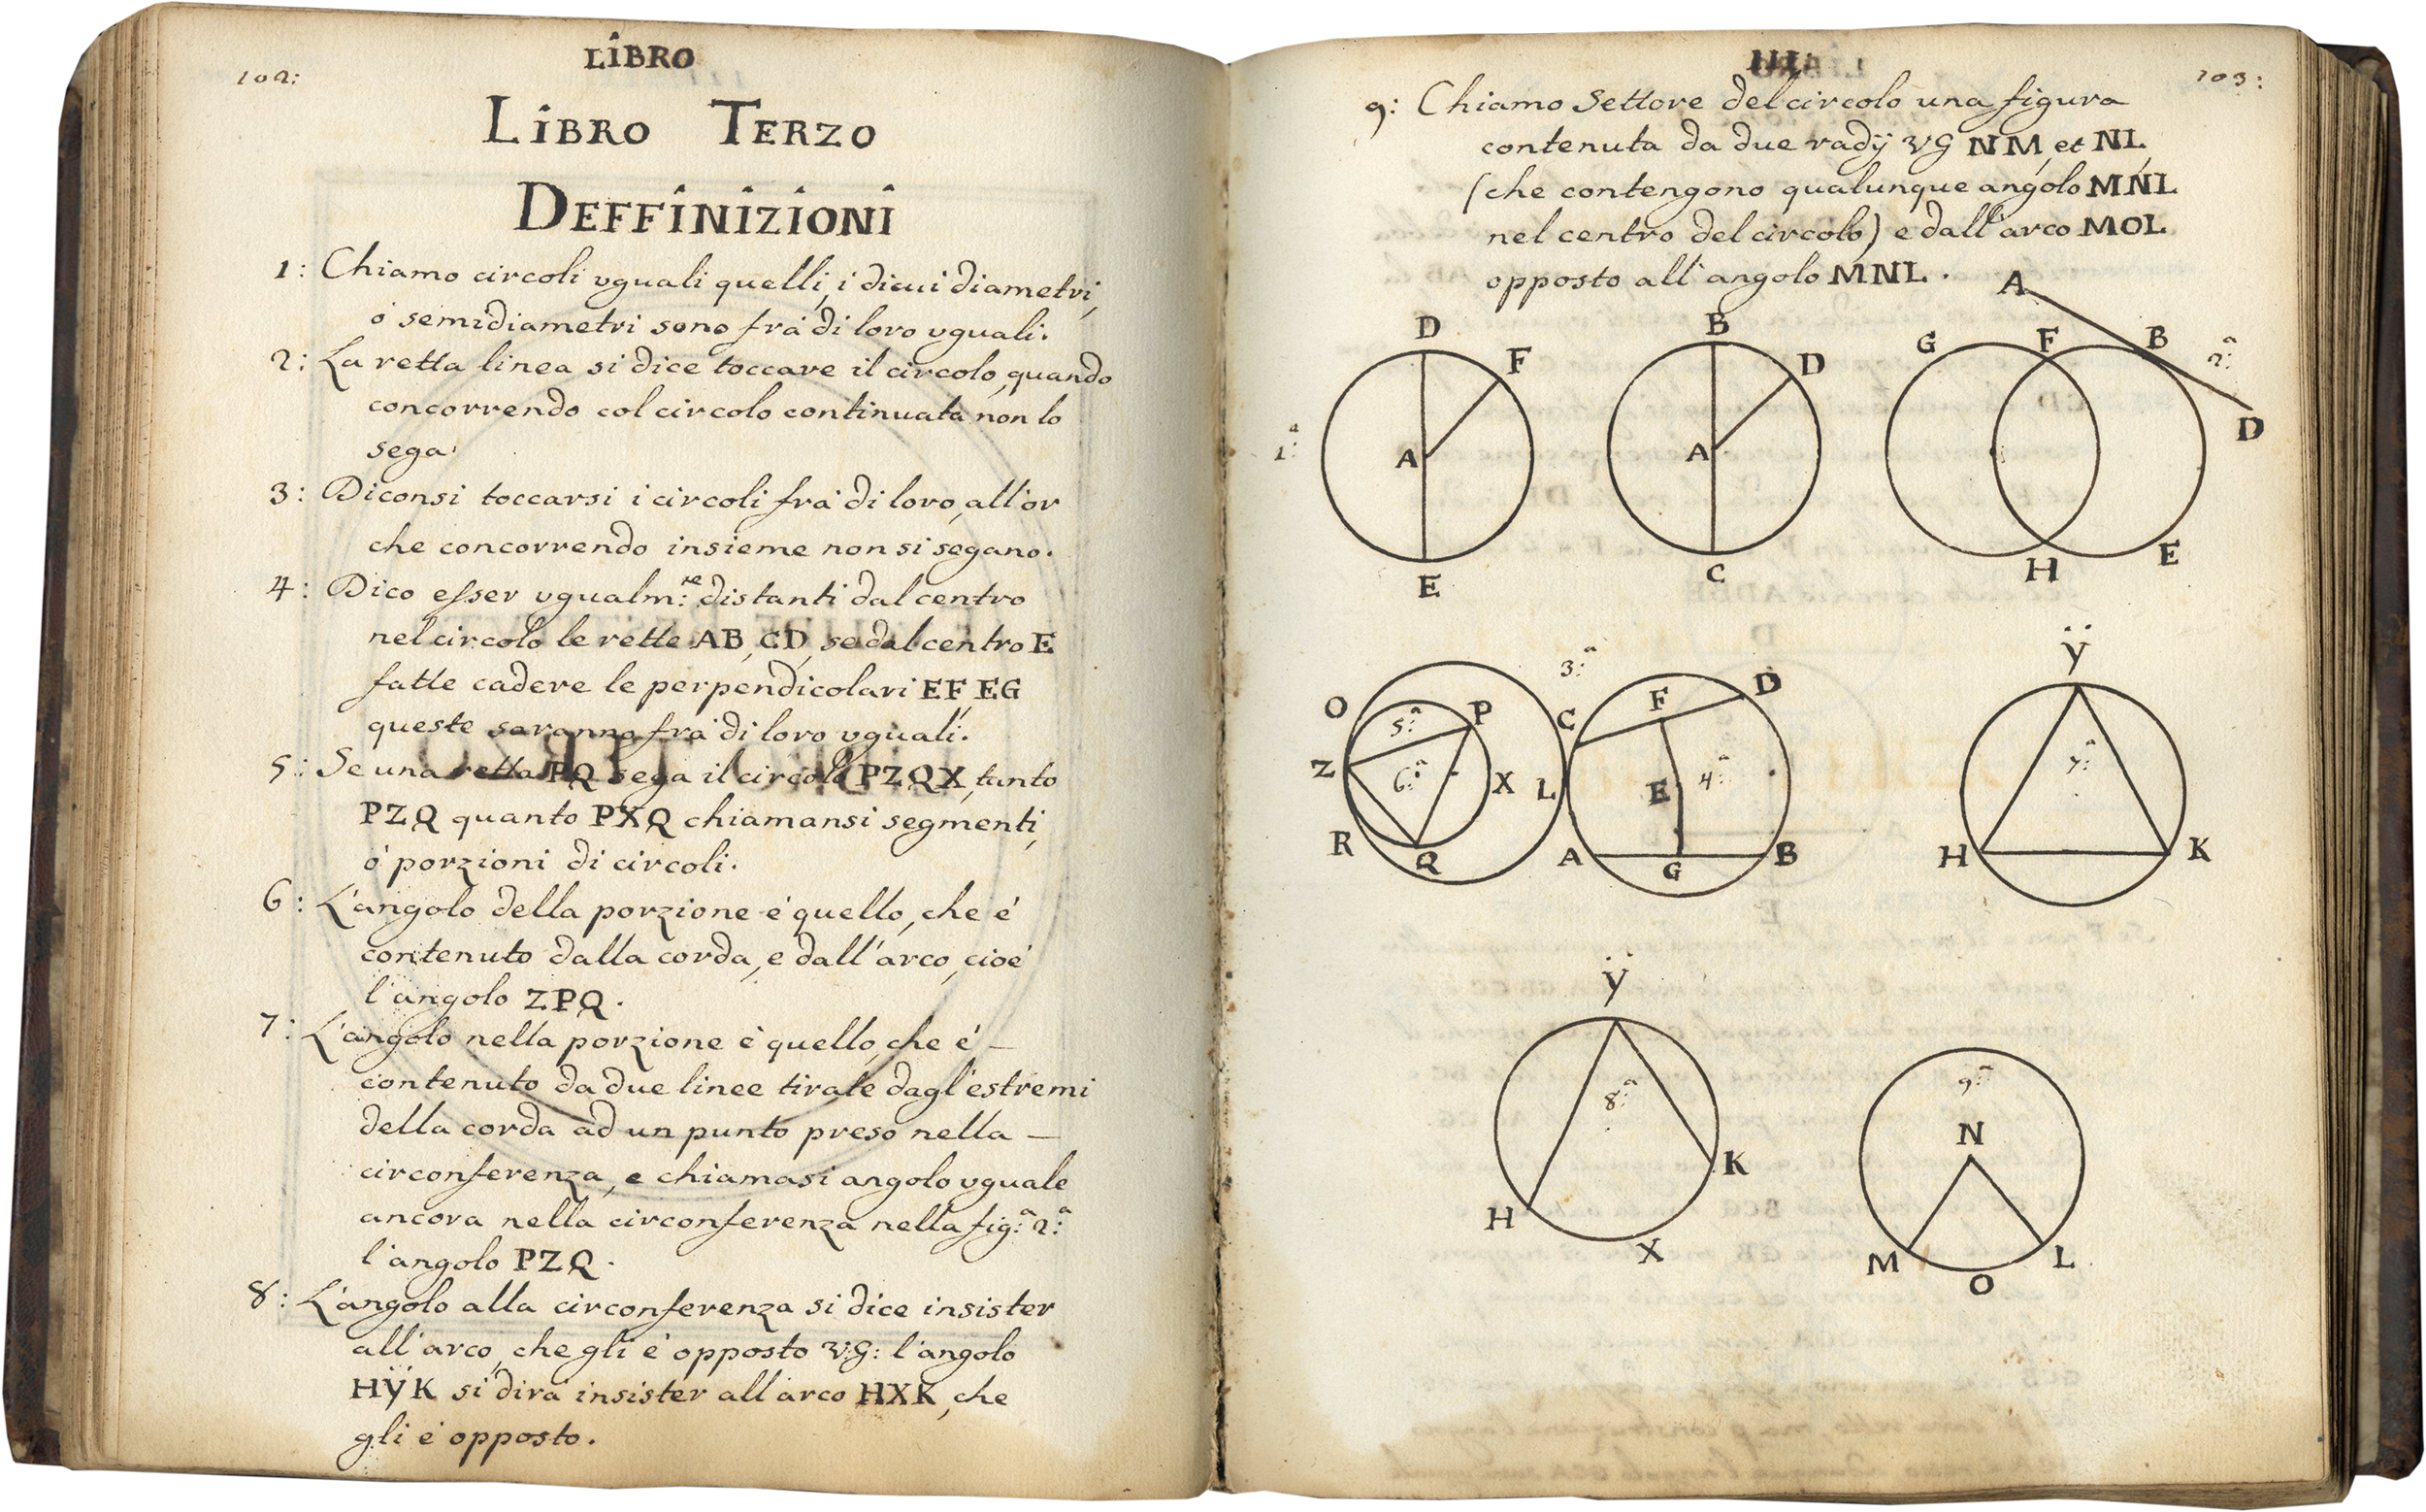 102:
LIBRO
LIBRO TERZO
DEFFINIZIONI
1: Chiamo circoli vguali quelli, i di cui diametri,
ò semidiametri sono frà di loro vguali.
2: La retta linea si dice toccare il circolo, quando
concorrendo col circolo continuata non lo
sega.
3: Diconsi toccarsi i circoli frà di loro, all'or
che concorrendo insieme non si segano.
4: Dico esser vgualm:te distanti dal centro
nel circolo le rette AB, CD, se dal centro E
fatte cadere le perpendicolari EF, EG
queste saranno frà di loro vguali.
5: Se una retta PQ sega il circolo PZQX, tanto
PZQ quanto PXQ chiamansi segmenti,
ò porzioni di circoli.
6: L'angolo della porzione è quello, che è
contenuto dalla corda, e dall'arco, cioè
l'angolo ZPQ.
7: L'angolo nella porzione è quello, che è —
contenuto da due linee tirate dagl'estremi
della corda ad un punto preso nella —
circonferenza, e chiamasi angolo vguale
ancora nella circonferenza nella fig:a 2:a
l'angolo PZQ.
8: L'angolo alla circonferenza si dice insister
all'arco, che gli è opposto VG: l'angolo
HŸK si dirà insister all'arco HXK, che
gli è opposto.
III
103:
9: Chiamo Settore del circolo una figura
contenuta da due radÿ VG NM, et NL,
(che contengono qualunque angolo MNL
nel centro del circolo) e dall'arco MOL
opposto all'angolo MNL.
A
D F B D G F B 2:a
1:a A A D
E C H E
3:a Ÿ
O 5:a P C F D
Z 6:a X L E 4:a 7:a
R Q A G B H K
Ÿ
8:a 9:a
N
K
H X M O L